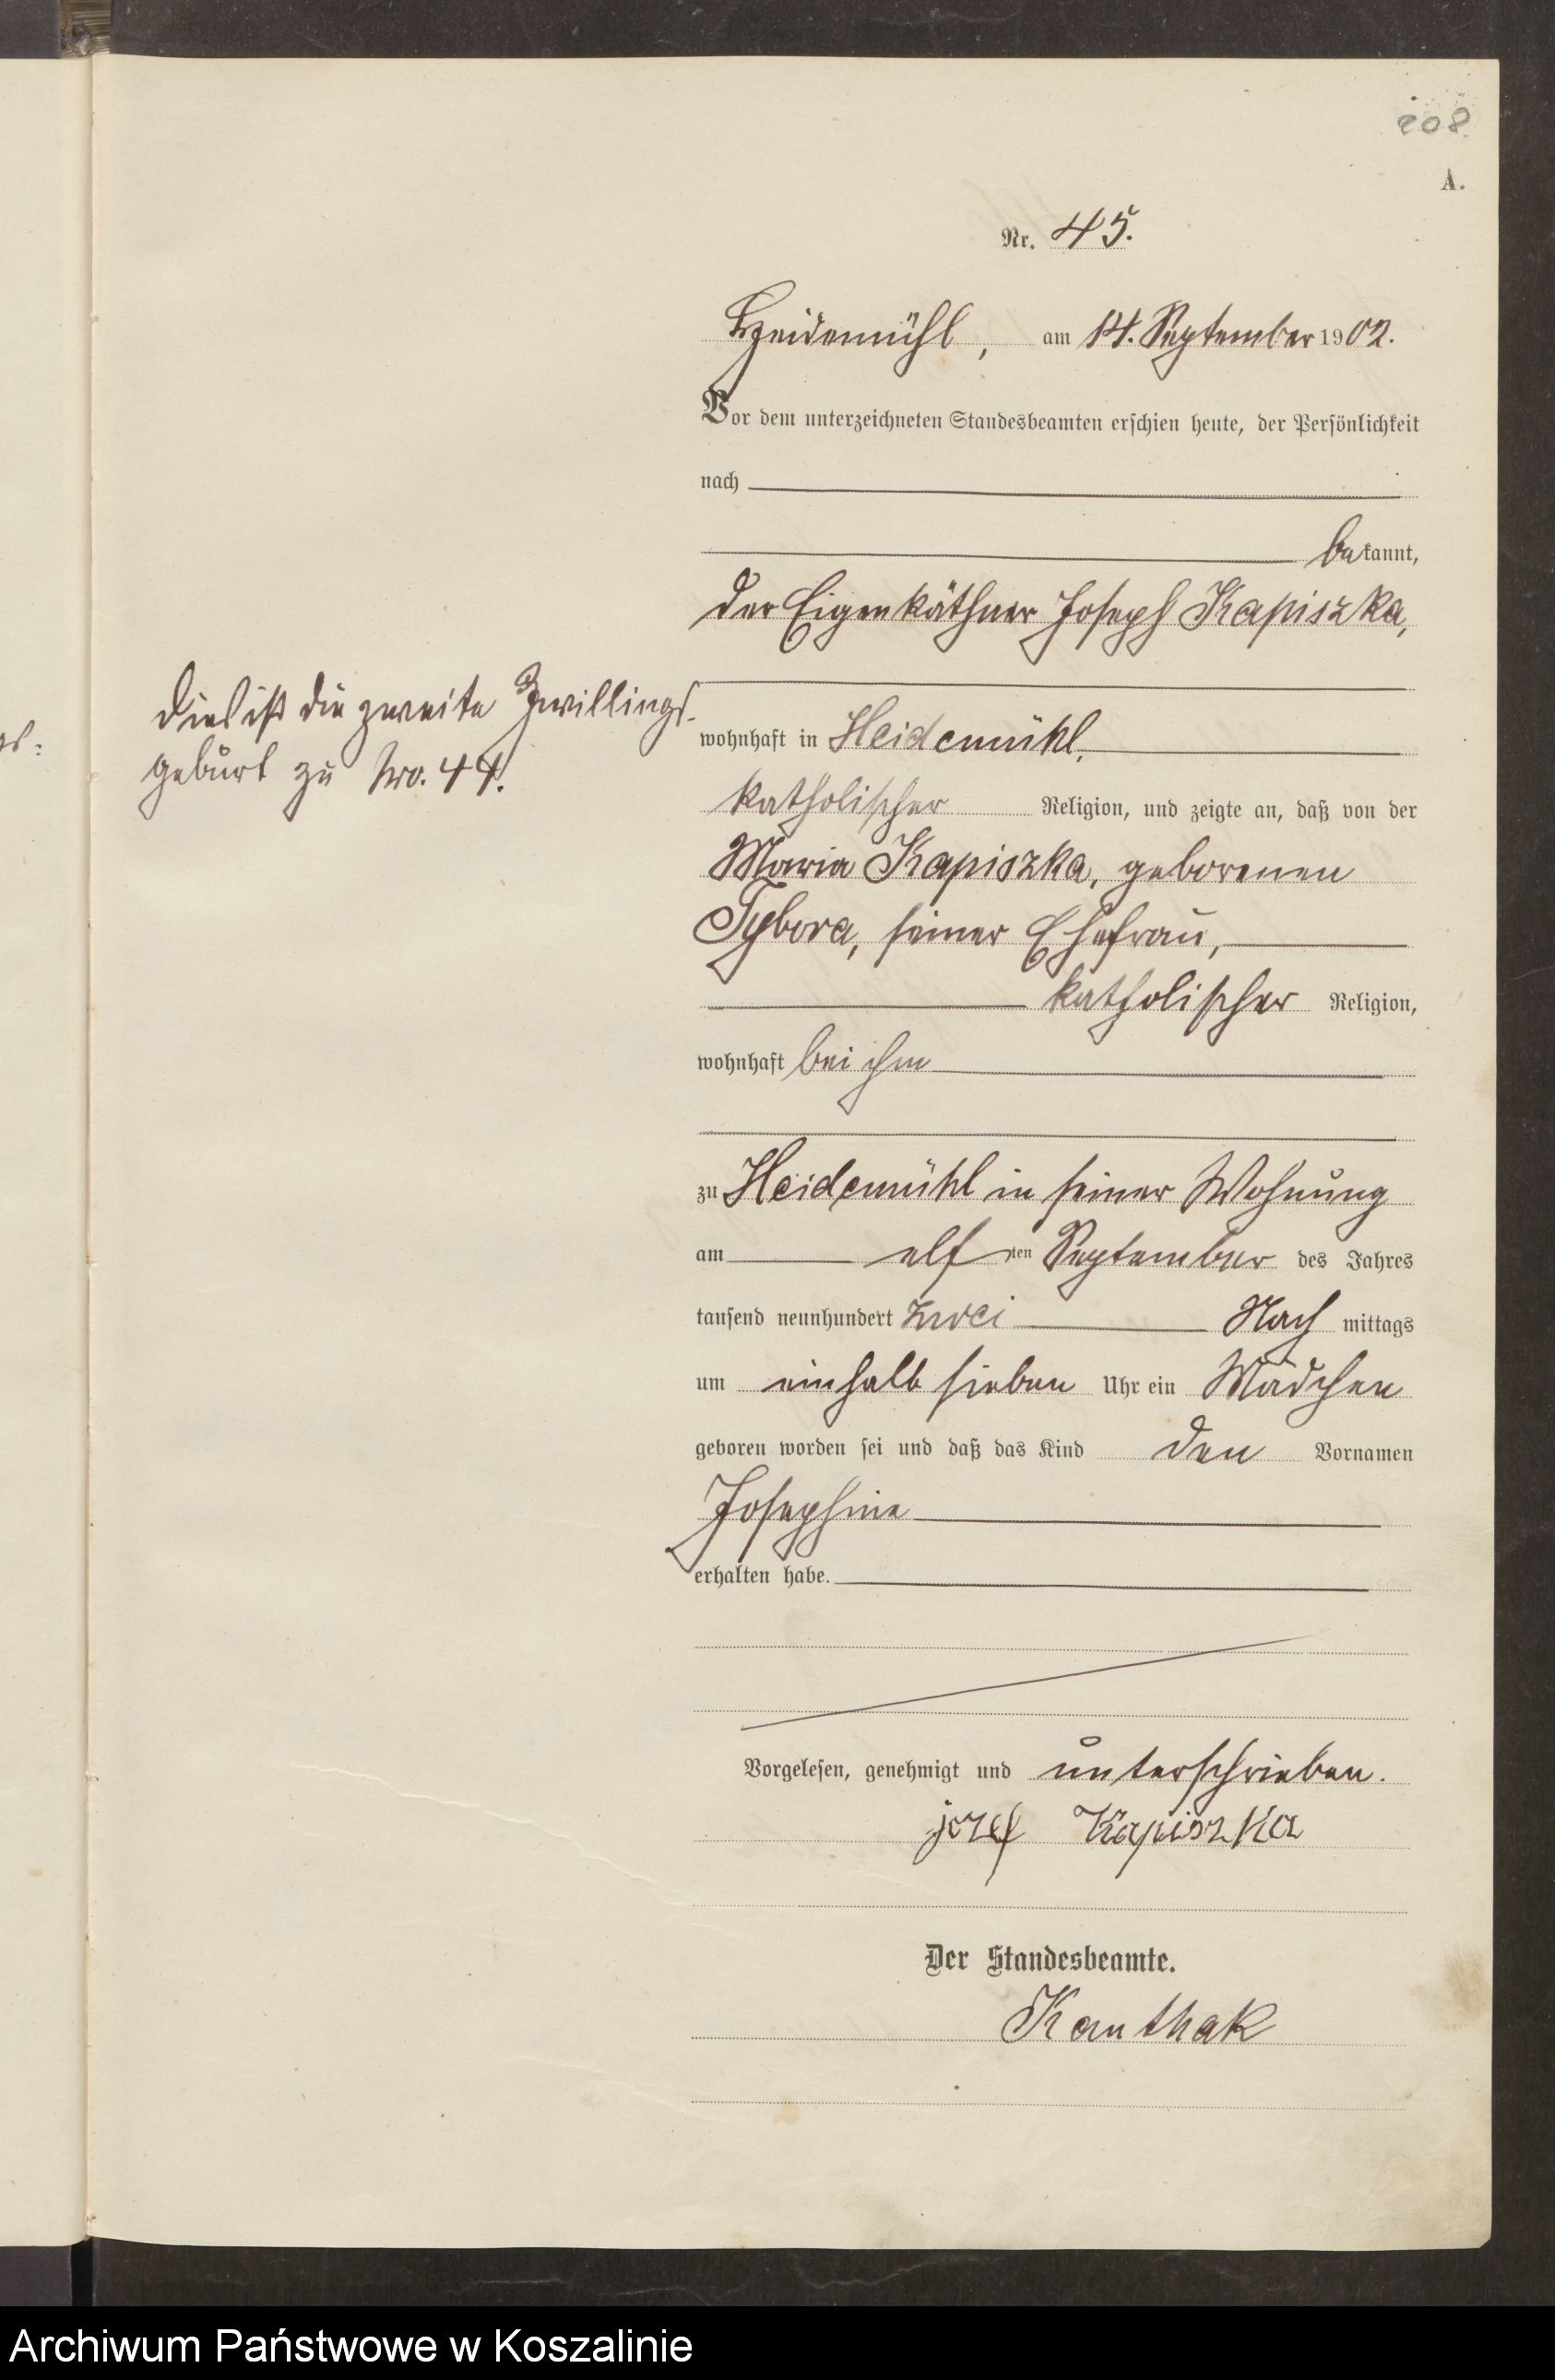 208
A.
Nr. 45.
Heidemühl, am 14. September 1902.
Vor dem unterzeichneten Standesbeamten erschien heute, der Persönlichkeit
nach
bekannt,
der Eigenkäthner Joseph Kapiszka,
wohnhaft in Heidemühl,
katholischer Religion, und zeigte an, daß von der
Maria Kapiszka, geborenen
Tybora, seiner Ehefrau,
katholischer Religion,
wohnhaft bei ihm
zu Heidemühl in seiner Wohnung
am elften September des Jahres
tausend neunhundert zwei Nachmittags
um einhalb sieben Uhr ein Mädchen
geboren worden sei und daß das Kind den Vornamen
Josephine
erhalten habe.
Vorgelesen, genehmigt und unterschrieben.
jozef Kapiszka
Der Standesbeamte.
Kauthak
Dies ist die zweite Zwillings-
geburt zu Nro. 44.
Archiwum Państwowe w Koszalinie